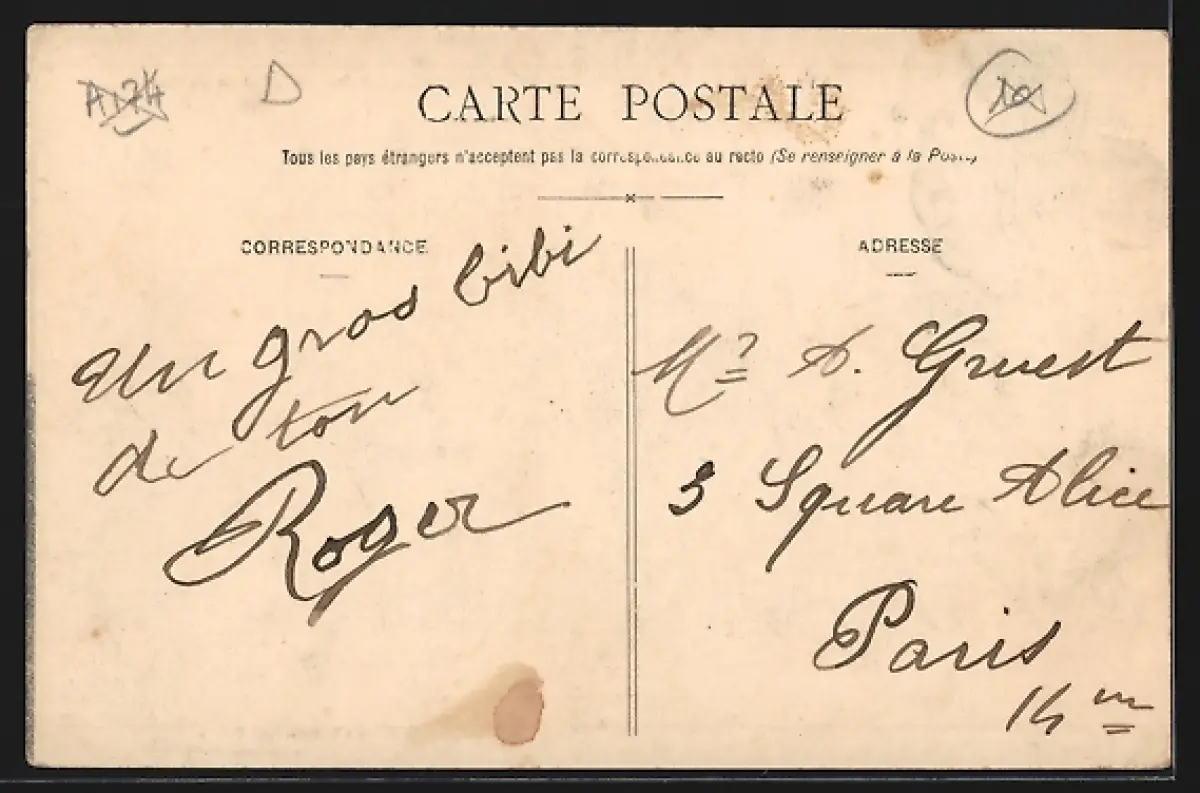 CARTE POSTALE
Tous les pays étrangers n'acceptent pas la correspondance au recto (Se renseigner à la Poste)
CORRESPONDANCE
Un gros bibi
de ton
Roger
ADRESSE
A. Gruest
3 Square Alice
Paris
14 me
D